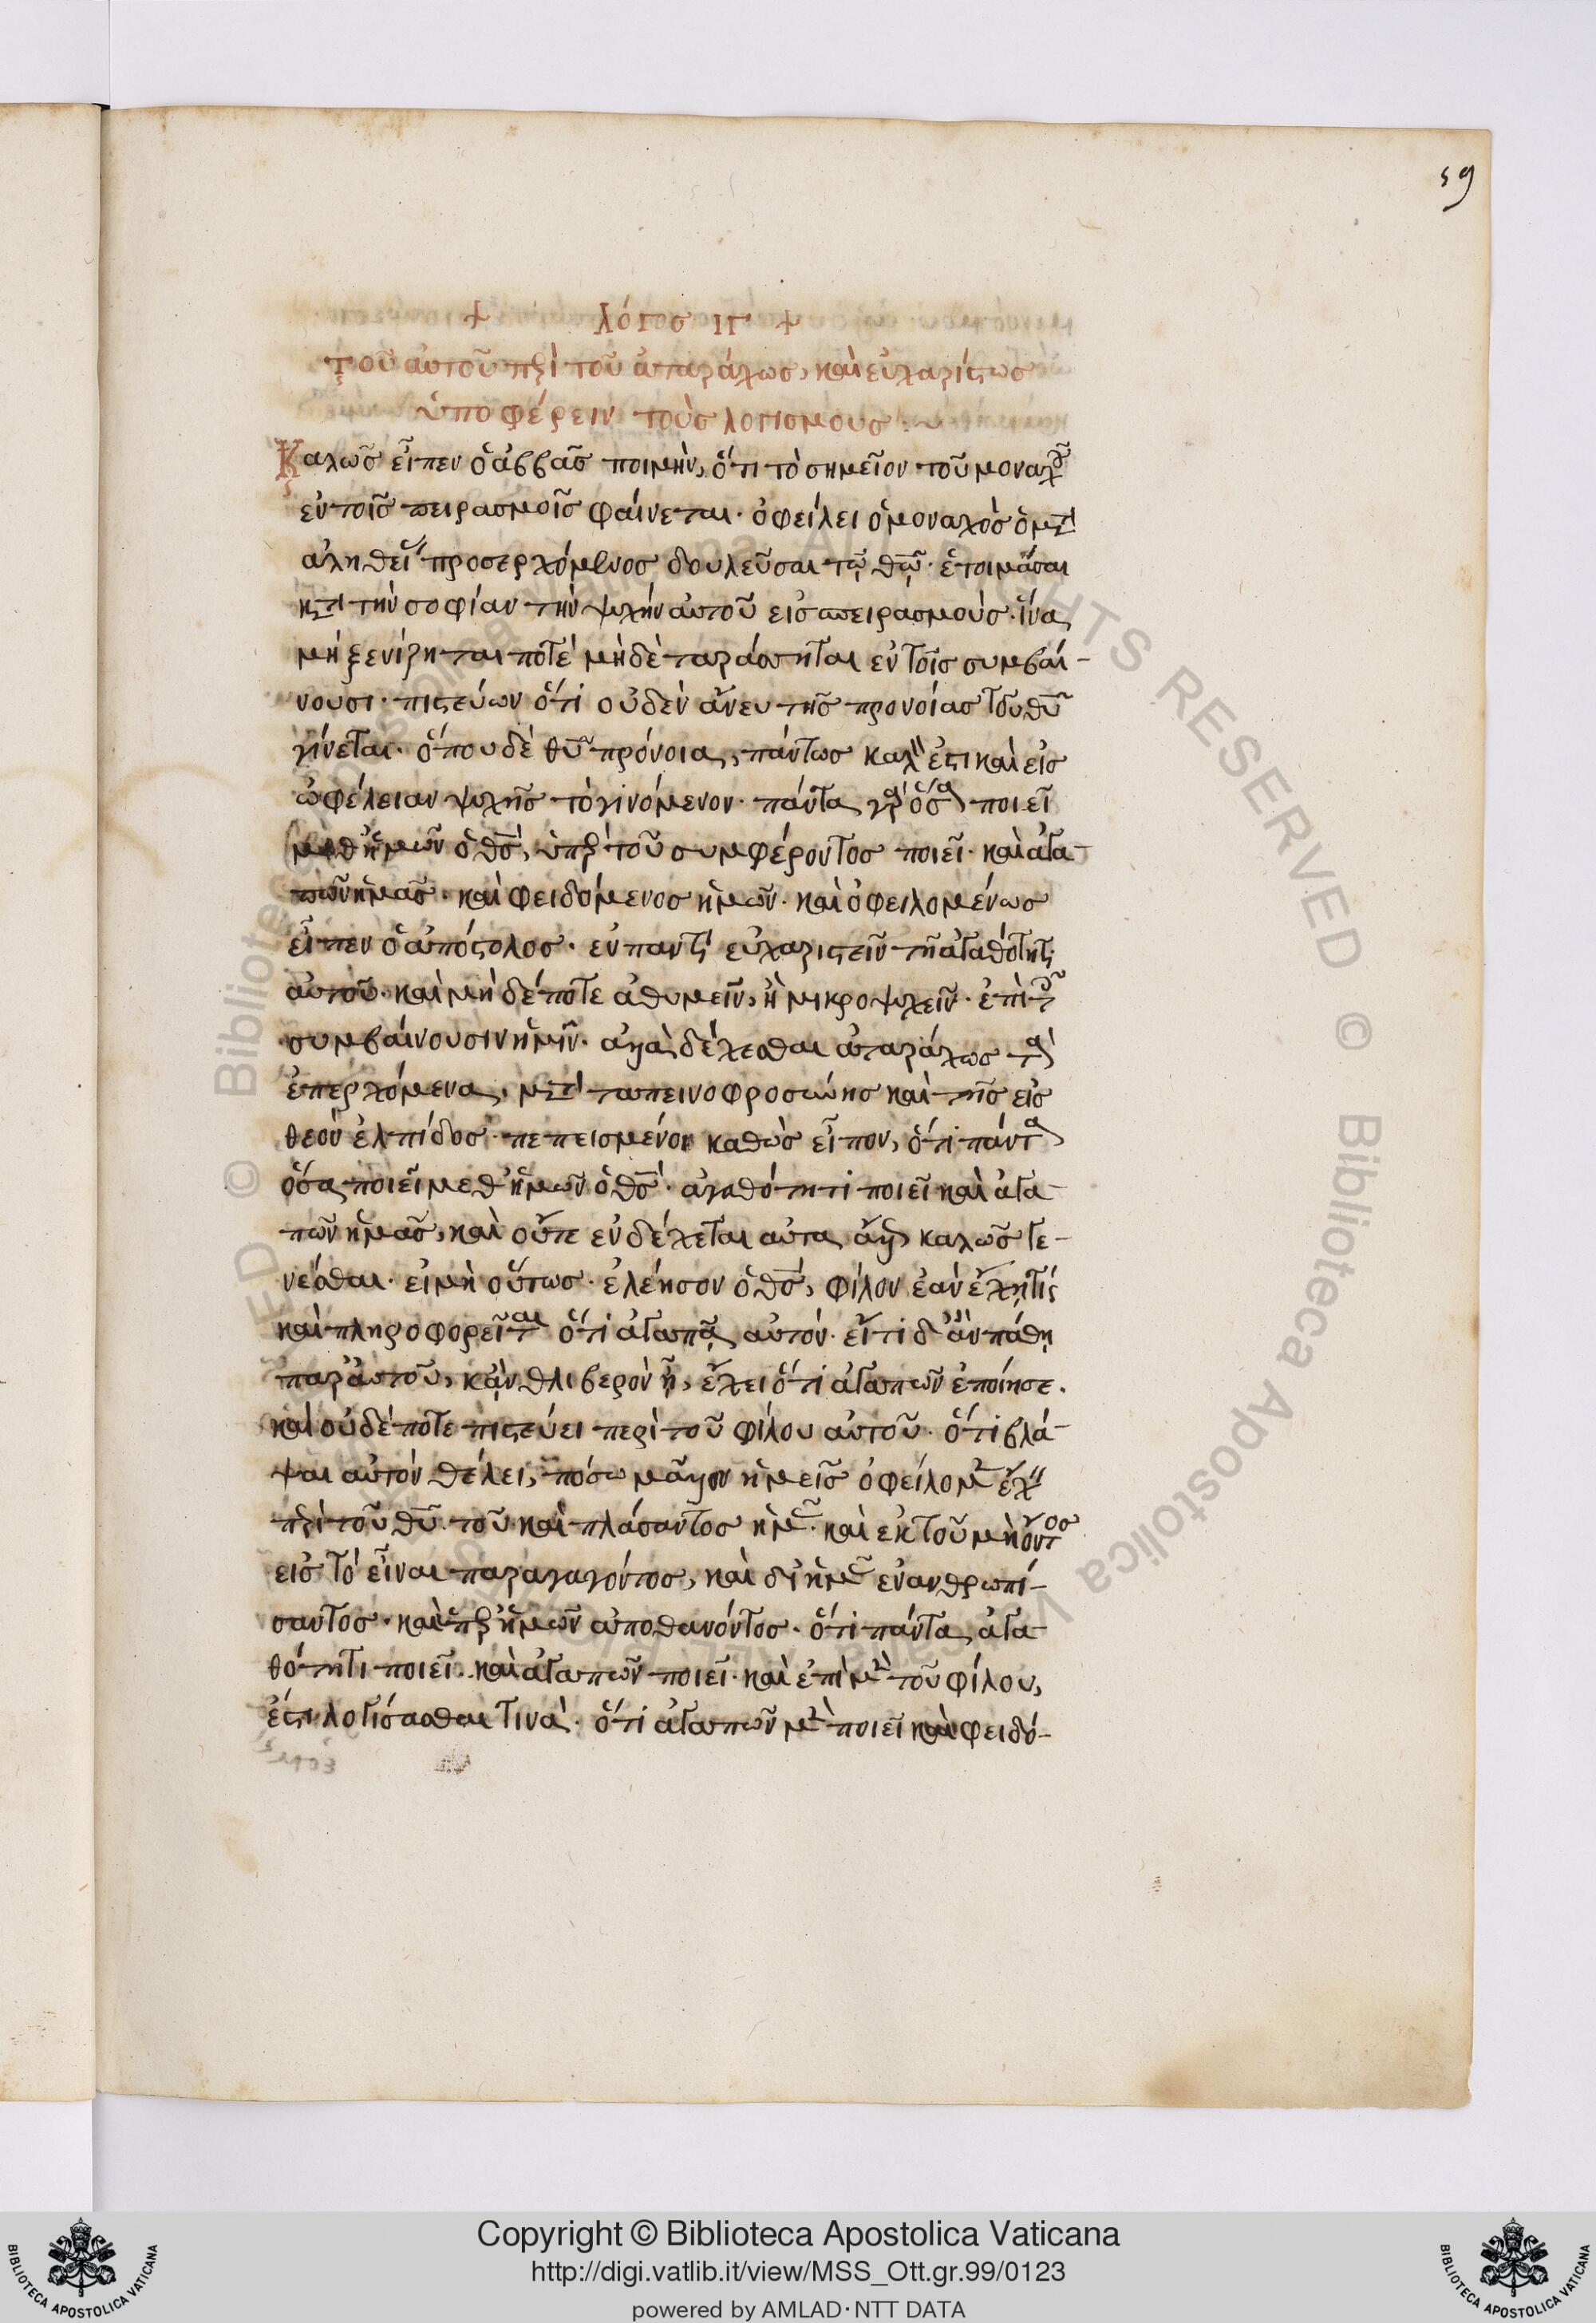 59
+ λόγοσ ιγ +
τοῦ αὐτοῦ πρὶ τοῦ ἀταράχωσ, καὶ εὐχαρίστωσ
ὑποφέρειν τοὺσ λογισμουσ
Καλῶσ εἶπεν ὁ ἀββᾶσ ποιμὴν, ὅτι τὸ σημεῖον τοῦ μοναχοῦ
ἐν τοῖσ πειρασμοῖσ φαίνεται· ὀφείλει ὁ μοναχὸσ ὁ μετὰ
ἀληθεί προσερχόμενοσ δουλεῦσαι τῶ θῶ· ἑτοιμάσαι
κτὰ τὴν σοφίαν τὴν ψυχὴν αὐτοῦ εἰσ πειρασμοὺσ· ἵνα
μὴ ξενίζηται ποτὲ μὴδὲ ταράσσηται ἐν τοῖσ συμβαί-
νουσι· πιστεύων ὅτι οὐδὲν ἄνευ τῆσ προνοίασ τοῦ θῦ
γίνεται· ὅπου δὲ θῦ πρόνοια, πάντωσ καλ ἐστι καὶ εἰσ
ὠφέλειαν ψυχῆσ τὸ γινόμενον· πάντα γὰρ ὅσα ποιεῖ
μεθ' ἡμῶν ὁ θσ, ὑπὲρ τοῦ συμφέροντοσ ποιεῖ· καὶ ἀγα-
πῶν ἡμᾶσ· καὶ φειδόμενοσ ἡμῶν· καὶ ὀφειλομένωσ
εἶπεν ὁ ἀπόστολοσ· ἐν παντὶ εὐχαριστεῖν τῆ ἀγαθότητι
αὐτοῦ· καὶ μὴ δέποτε ἀθυμεῖν, ἢ μικροψυχεῖν· ἐπὶ τοῖσ
συμβαίνουσιν ἡμῖν· ἀλλὰ δέχεσθαι ἀταράχωσ τὰ
ἐπερχόμενα, μετὰ ταπεινοφροσύνησ καὶ τῆσ εἰσ
θεὸν ἐλπίδοσ· πεπεισμένοι καθὼσ εἶπον, ὅτι πάντα
ὅσα ποιεῖ μεθ' ἡμῶν ὁ θσ· ἀγαθότητι ποιεῖ καὶ ἀγα-
πῶν ἡμᾶσ, καὶ οὔτε ἐνδέχεται αὐτα ἄλλ καλῶσ γε-
νέσθαι· εἰ μὴ οὕτωσ· ἐλέησον ὁ θσ, φίλον ἐὰν ἔχη τίσ
καὶ πληροφορεῖται ὅτι ἀγαπᾶ αὐτόν· εἴ τι δ' ἂν πάθη
παρ' αὐτοῦ, κἂν θλιβερὸν ἦ, ἔχει ὅτι ἀγαπῶν ἐποίησε.
καὶ οὐδέποτε πιστεύει περὶ τοῦ φίλου αὐτοῦ· ὅτι βλά-
ψαι αὐτὸν θέλει, πόσω μᾶλλον ἡμεῖσ ὀφείλομεν ἔχ
πρὶ τοῦ θῦ τοῦ καὶ πλάσαντοσ ἡμᾶσ· καὶ ἐκ τοῦ μὴ ὄντοσ
εισ τὸ εἶναι παραγαγόντοσ, καὶ δι' ἡμᾶσ ἐνανθρωπί-
σαντοσ· καὶ ὑπὲρ ἡμῶν ἀποθανόντοσ· ὅτι πάντα ἀγα-
θότητι ποιεῖ· καὶ ἀγαπῶν ποιεῖ· καὶ ἐπὶ μὲν τοῦ φίλου,
ἔστι λογίσασθαι τινὰ· ὅτι ἀγαπῶν μὲν ποιεῖ καὶ φειδό-
Copyright © Biblioteca Apostolica Vaticana
http://digi.vatlib.it/view/MSS_Ott.gr.99/0123
powered by AMLAD·NTT DATA